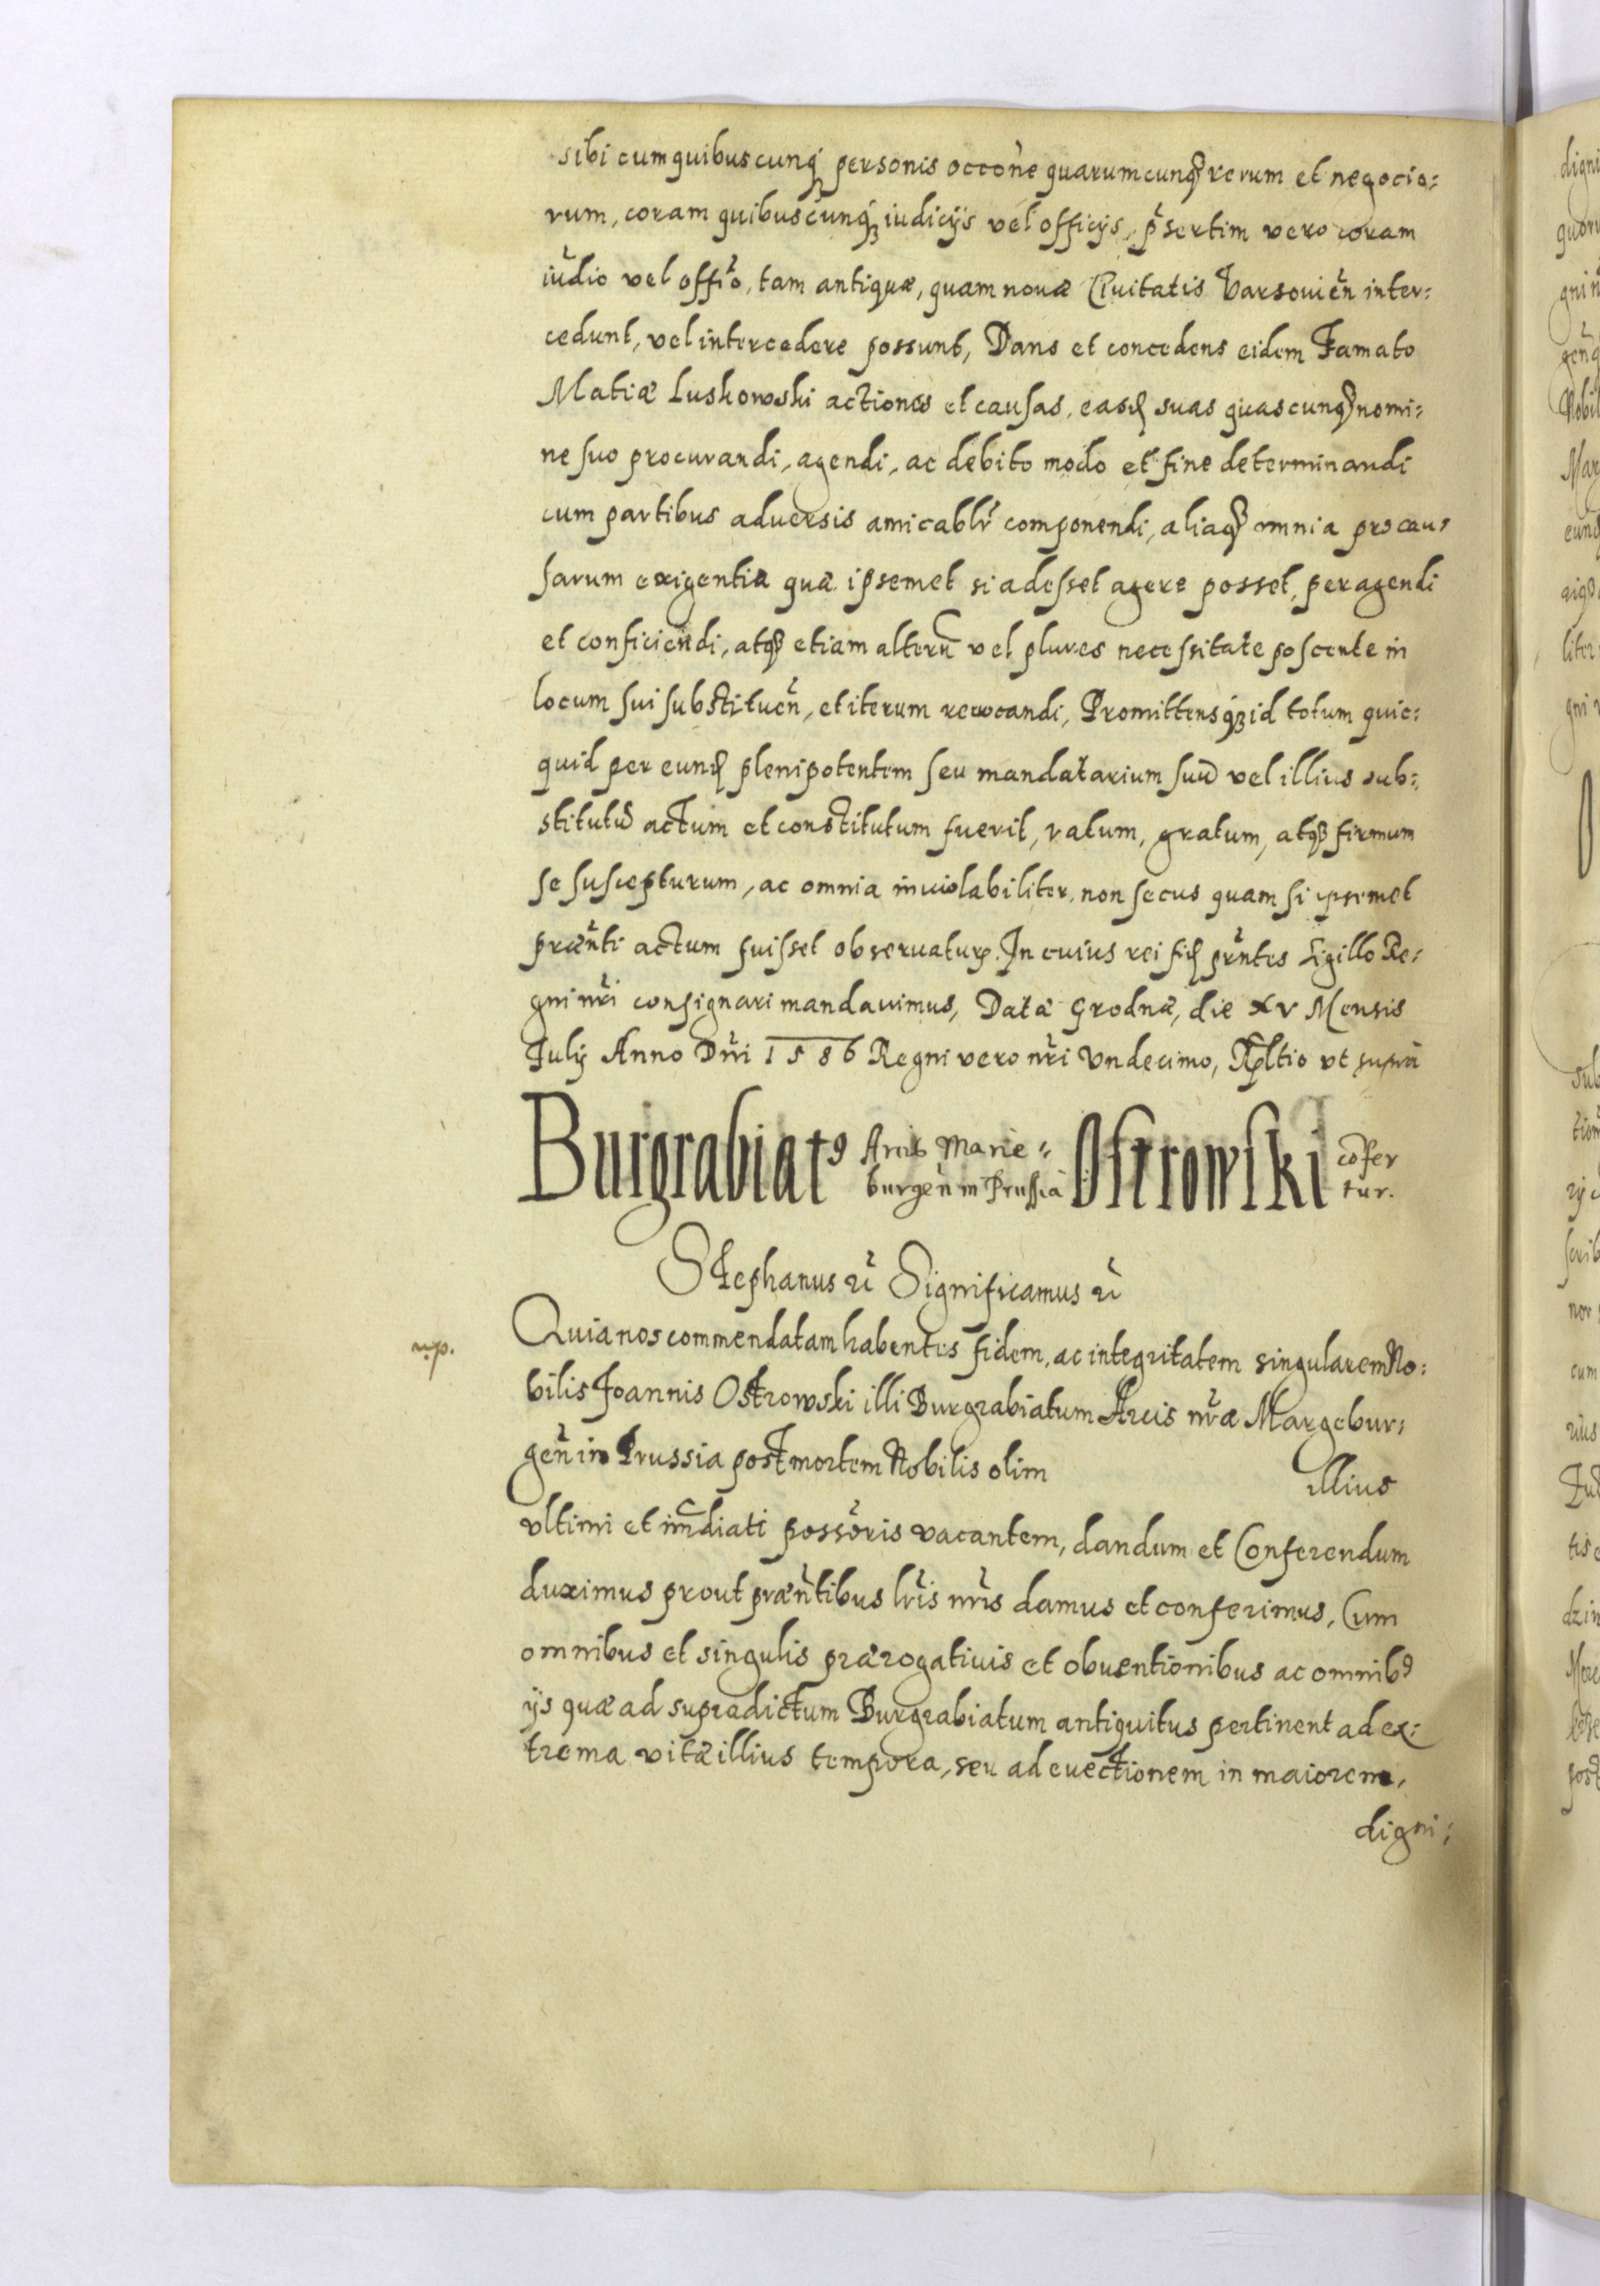 sibi cum quibuscunq; personis occõne quarumcunq; rerum et negocio:
rum, coram quibuscunq; iudicijs vel officijs, p̃sertim vero coram
iũdio vel offĩo, tam antiquæ, quam nouæ Ciuitatis Varsouieñ inter:
cedunt, vel intercedere possunt, Dans et concedens eidem Famato
Matiæ Lushowski actiones et causas, easq; suas quascunq; nomi:
ne suo procurandi, agendi, ac debito modo et fine determinandi
cum partibus aduersis amicablr̃ componendi, aliaq; omnia pro cau:
sarum exigentia quæ ipsemet si adesset agere posset, peragendi
et conficiendi, atq; etiam alterũ vel plures necessitate poscente in
locum sui substitueñ, et iterum reuocandi, Promittensq; id totum quic:
quid per eund plenipotentem seu mandatarium suũ vel illius sub:
stitutũ actum et constitutum fuerit, ratum, gratum, atq; firmum
se suscepturum, ac omnia inuiolabiliter, non secus quam si ipsemet
præñti actum fuisset obseruatur. In cuius rei fid pr̃ntes Sigillo Re:
gni nr̃i consignari mandauimus, Datæ Grodnæ, die XV Mensis
Iulij Anno Dñi 1586 Regni vero nr̃i Vndecimo, Rltio vt supra
Burgrabiat9 Arcis Marie: burgeñ in Prussia Ostrowski cõfer tur.
Stephanus ꝛc̃ Significamus ꝛc̃
Quia nos commendatam habentes fidem, ac integritatem singularem No:
np.
bilis Joannis Ostrowski illi Burgrabiatum Arcis nr̃æ Margebur:
geñ in Prussia post mortem Nobilis olim illius
vltimi et im̃diati possõris vacantem, dandum et Conferendum
duximus prout præñtibus lr̃is nr̃is damus et conferimus, Cum
omnibus et singulis prærogatiuis et obuentionibus ac omnib9
ijs quæ ad supradictum Burgrabiatum antiquitus pertinent ad ex:
trema vitæ illius tempora, seu ad euectionem in maiorem,
digni: